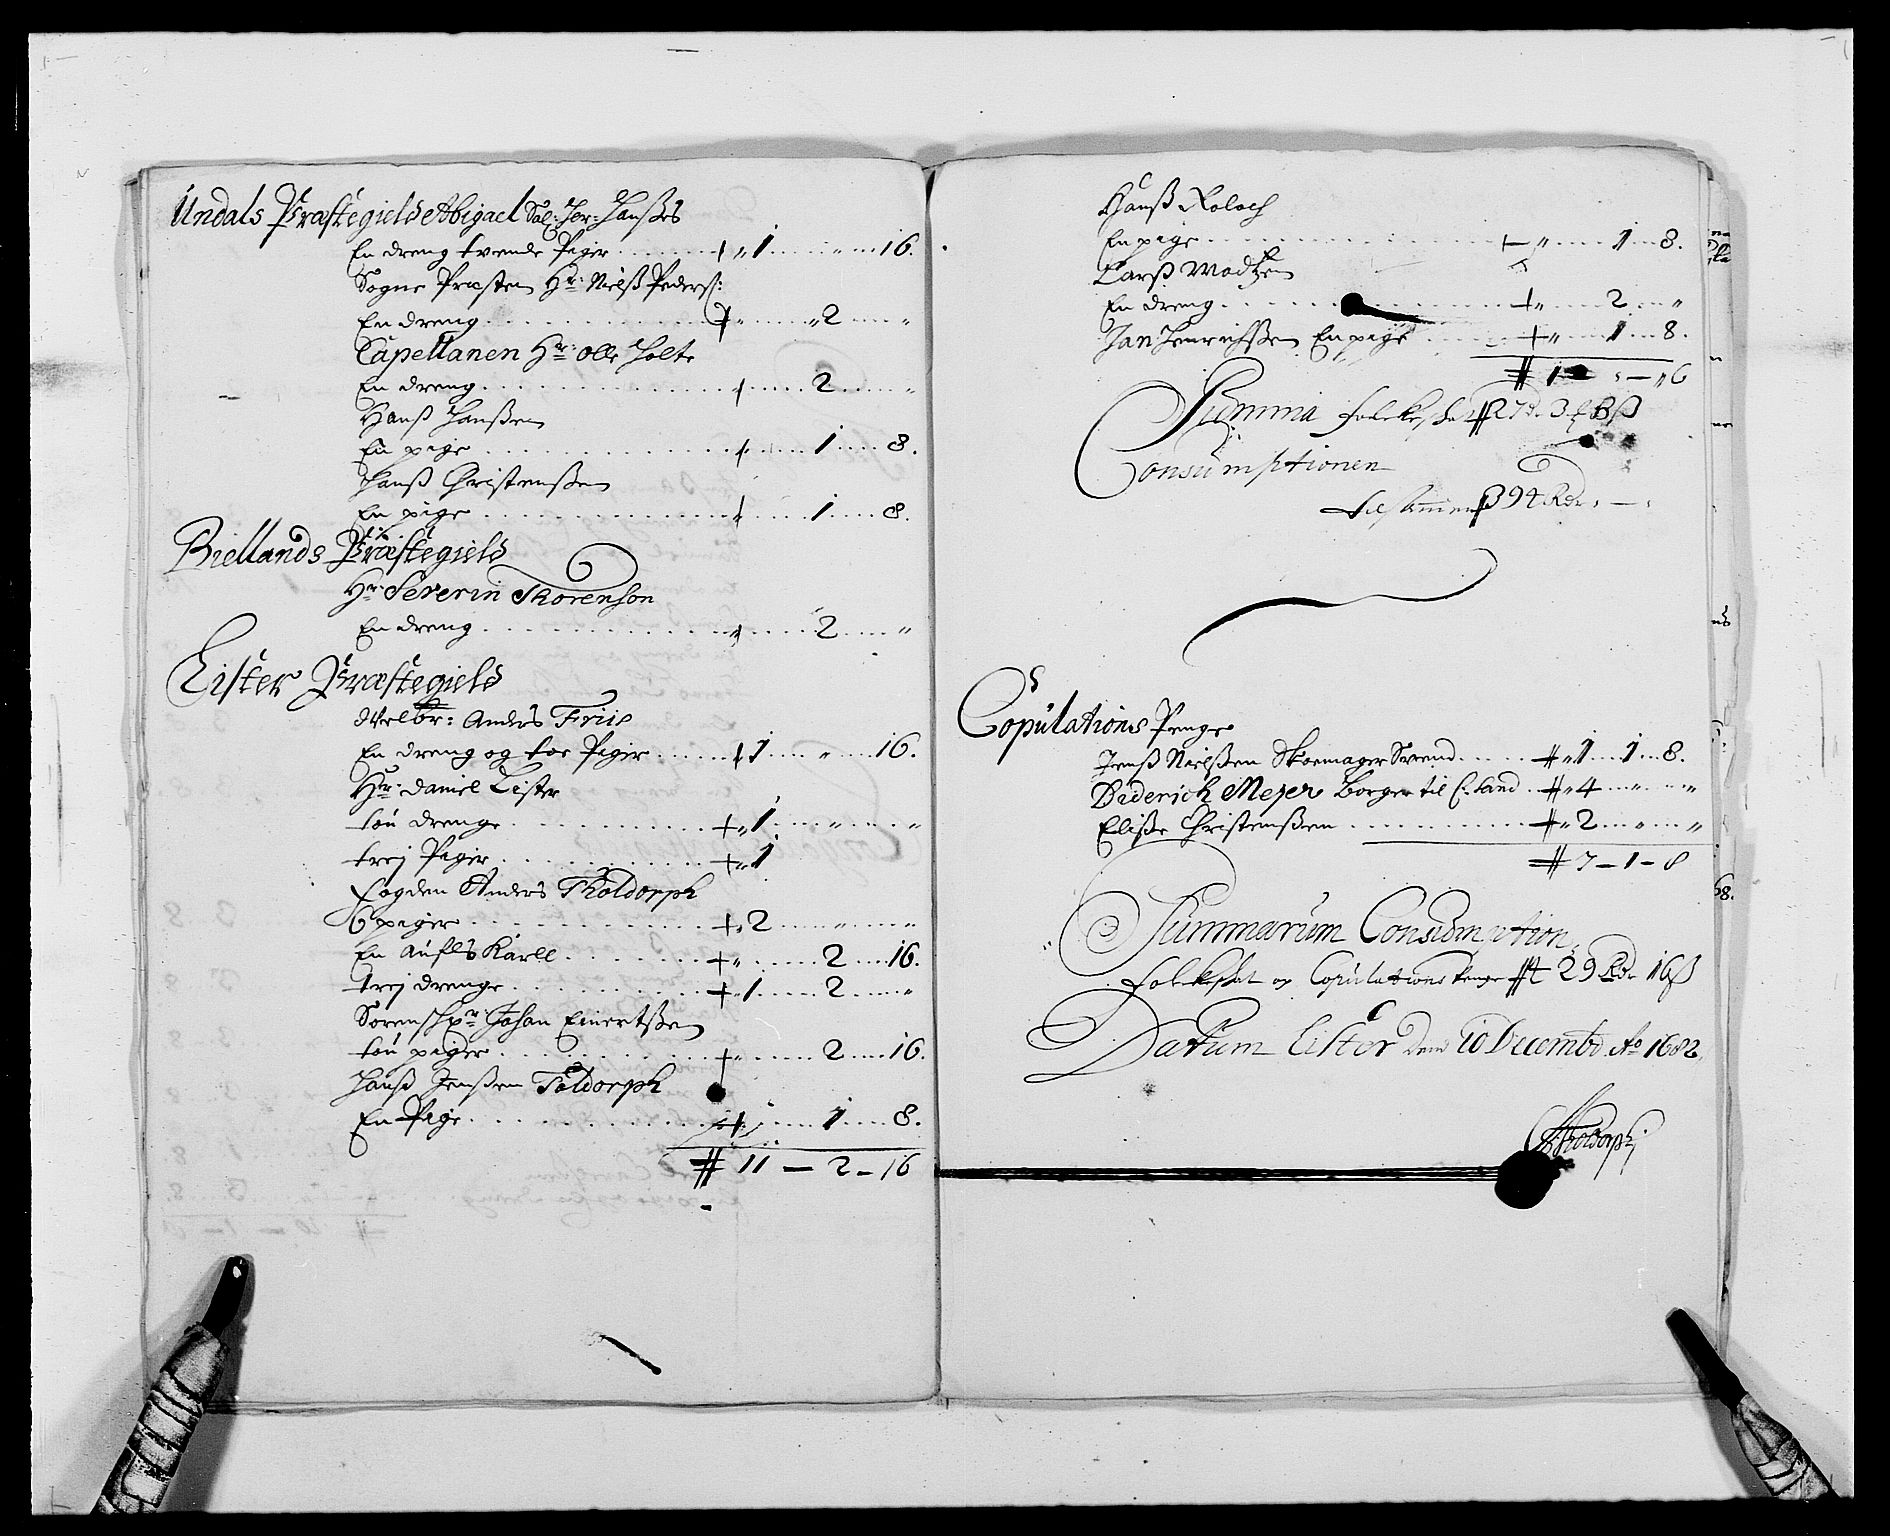 Undals Præstegield Abigael Sal: Hor: Hanßes
En dreng tvende Piger . . . . . + „ 1 . . . „ . . . 16.
Sogne Præsten Hr: Nielß Peders:
En dreng . . . . . + „ . . . „ 2 . . . „
Capellanen Hr: Olle Holte
En dreng . . . . . + . . . 2 . . . „
Hanß Hanßen
En pige . . . . . + . . . 1 . . . 8.
Hanß Christenßen
En pige . . . . . + . . . 1 . . . 8.
Biellands Præstegield
Hr: Severin Thorenson
En dreng . . . . . + . . . 2 . . . „
Lister Præstegield
Welbr: Anders Friis
En dreng og toe Piger . . . . . + 1 . . . „ . . . 16.
Hr: Daniel Lister
tou drenge . . . . . + „ 1 . . . „ . . . „
trej Piger . . . . . + „ 1
fogden Anders Tholdorph
6 piger . . . . . + „ 2 . . . „ . . . „
En Aufls Karll . . . . . + „ . . . 2 . . . 16.
trej drenge . . . . . + „ 1 . . . 2 . . . „
Sorenschr: Johan Einertßen
tou piger . . . . . + „ . . . 2 . . . 16.
Hanß Jenßen Toldorph
En Pige . . . . . + . . . 1 . . . 8.
# 11 — 2 — 16
Hanß Roloch
En pige . . . . . + „ . . . 1 . . . 8.
Larß Madtzen
En dreng . . . . . + „ . . . 2 . . . „
Jan Henrichßen En pige . . . + „ . . . 1 . . . 8.
# 1 — 16
Summa folckeskat 27 3 ß
Consumptionen
tilsammen 394 Rdr. — 
Copulations Penge
Jenß Nielßen Skoemager Svend . . . # „ 1 . . 1 . . 8.
Diderich Mejer Borger til C: Sand . # „ 4 . . „ . . „
Eliße Christenßen . . . . . # „ 2 . . „ . . „
# 7 — 1 — 8
Summarum Consumption,
folckeskat og Copulations Penge # 429 Rdr 16 ß
Datum Lister den 10 Decembr Ao 1682.
ATholdorph